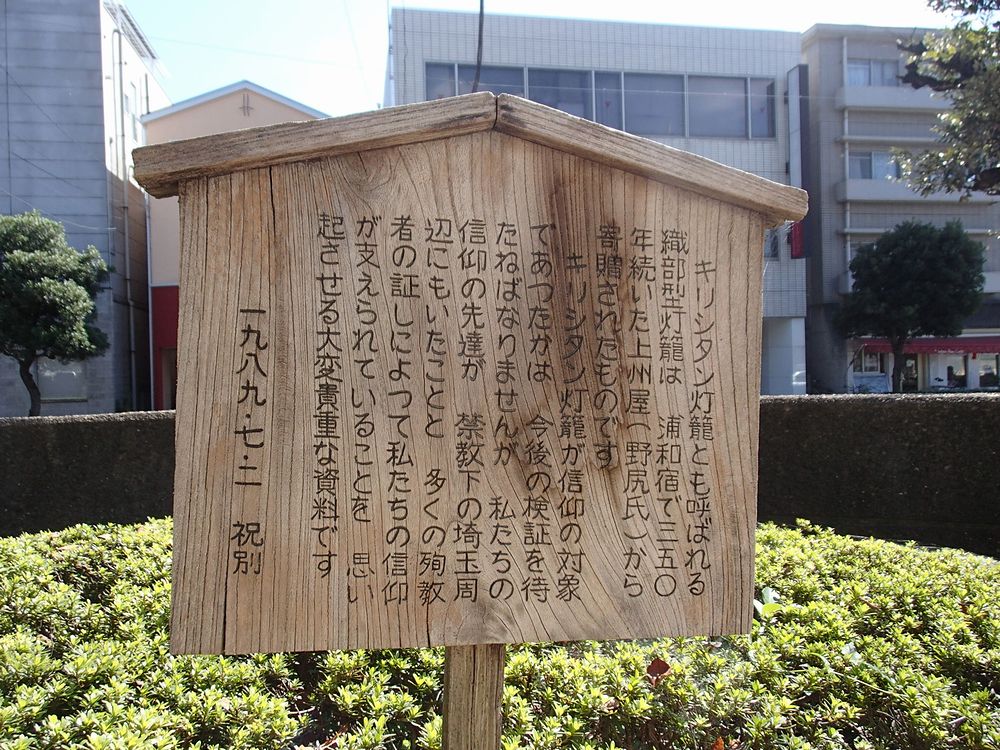 キリシタン灯籠とも呼ばれる
織部型灯籠は　浦和宿で三五〇
年続いた上州屋(野尻氏)から
寄贈されたものです
キリシタン灯籠が信仰の対象
であつたかは　今後の検証を待
たねばなりませんが　私たちの
信仰の先達が　禁教下の埼玉周
辺にもいたことと　多くの殉教
者の証しによって私たちの信仰
が支えられていることを　思い
起させる大変貴重な資料です
一九八九・七・二　祝別